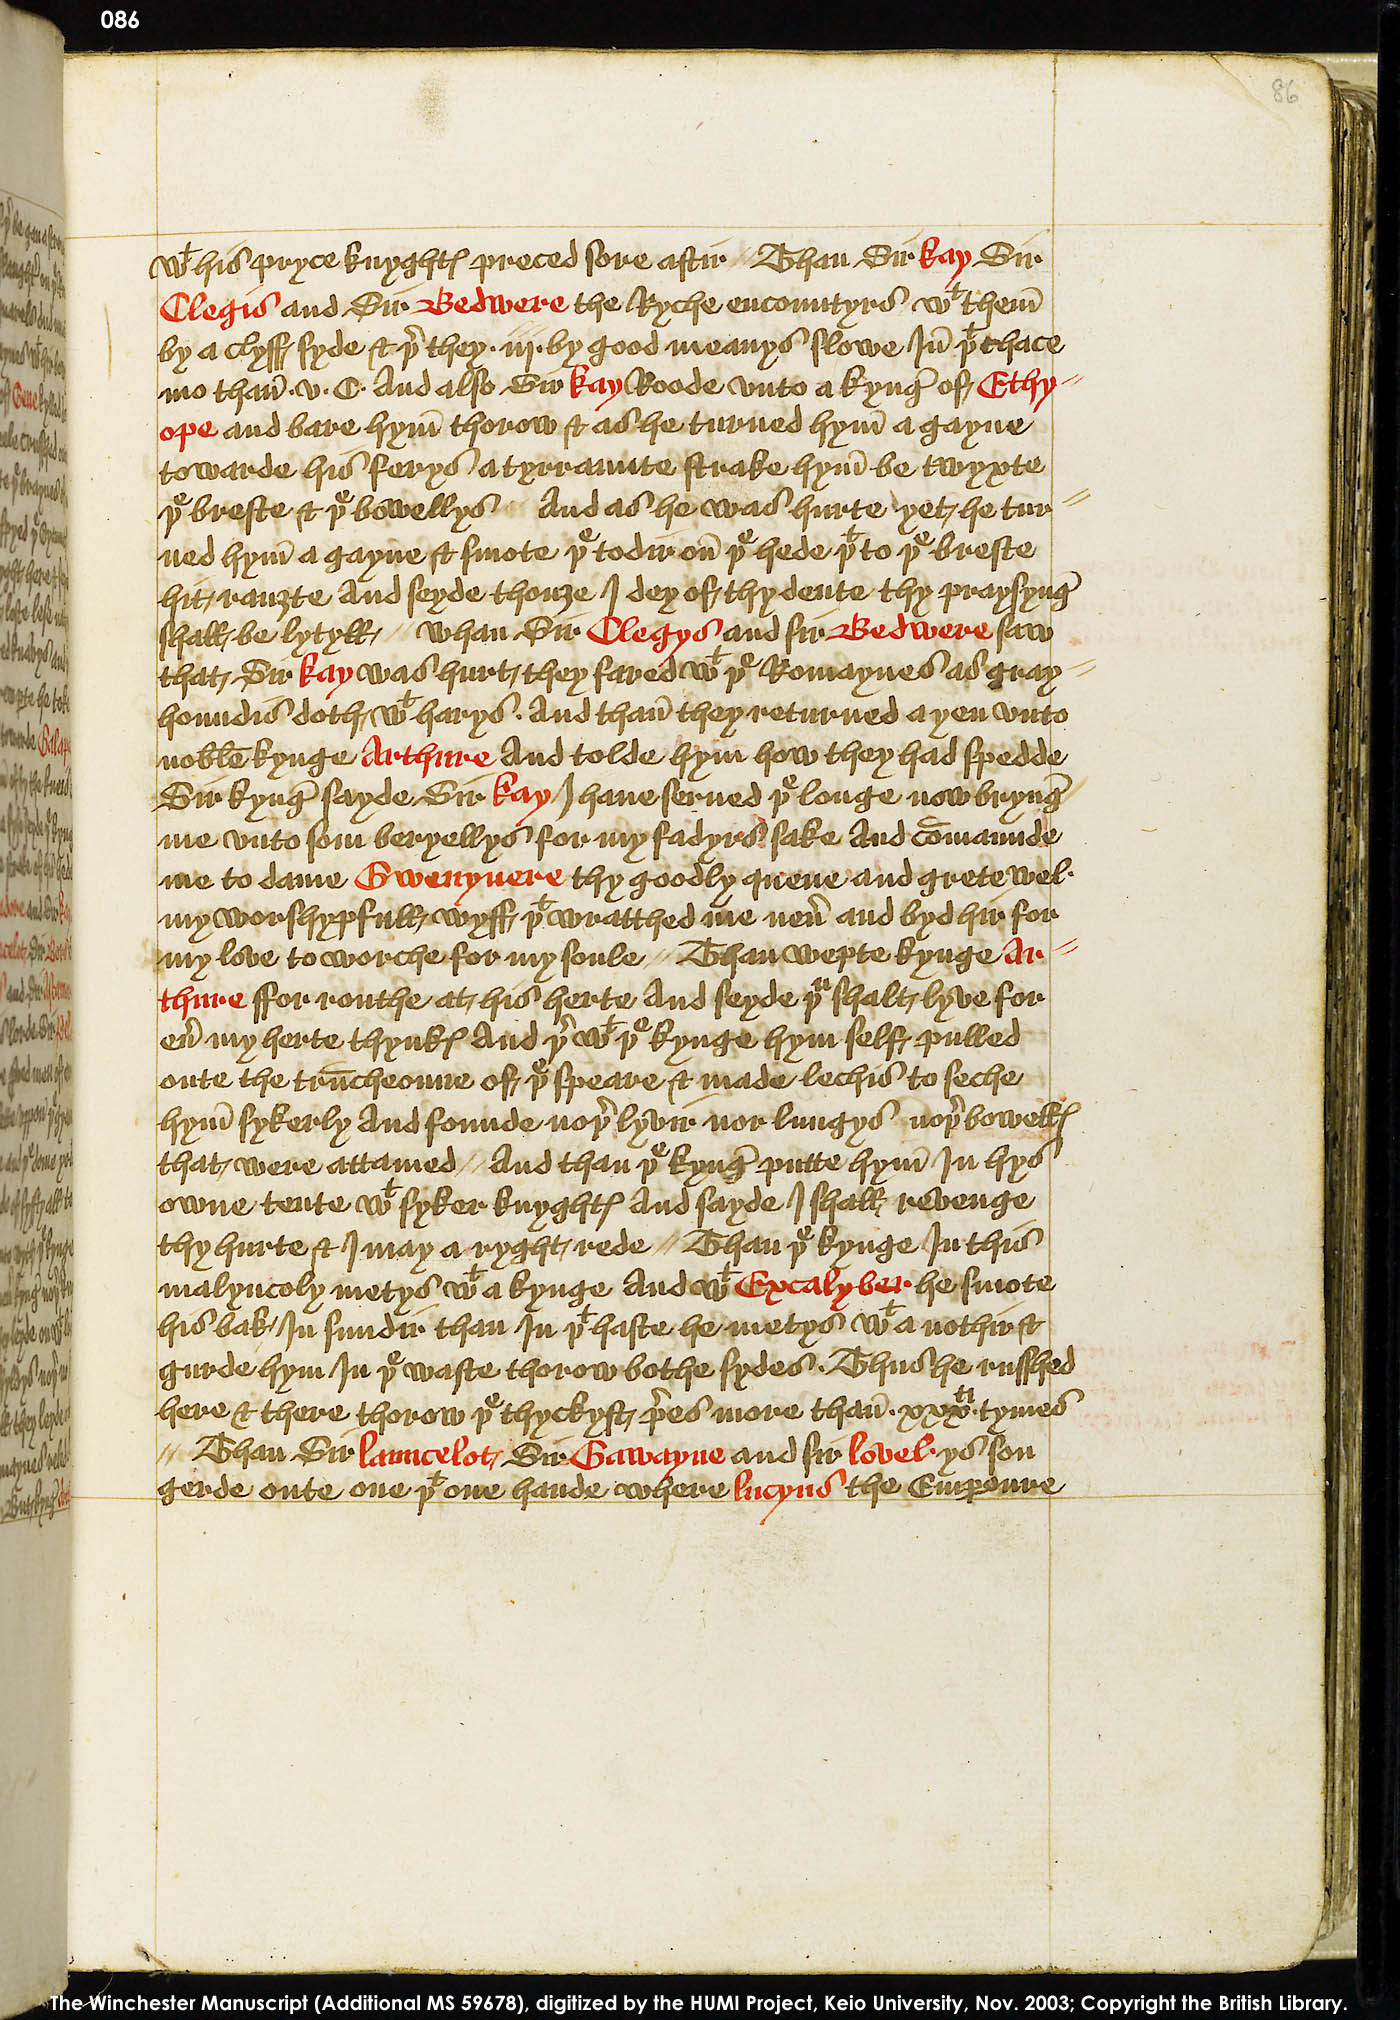 086
86
wᵗ his pryce knyghtꝭ preced sore aftir // Than Sir kay Sir
Clegis and Sir Bedwere the Ryche encountyrs wᵗ them̄
by a clyff syde & þ̄ they .iij. by good meanys slowe In̄ þᵗ chace
mo than̄ .v. C. And also Sir kay Roode vnto a kynḡ of Ethy//
ope and bare hym̄ thorow & as he turned hym̄ a gayne
towarde his ferys a tyrraunte strake hym̄ be twyxte
þᵉ breste & þᵉ bowellys And as he was hurte yet he tur//
ned hym̄ a gayne & smote þᵉ todir on̄ þᵉ hede þᵗ to þᵉ breste
hit rauȝte And seyde thouȝe I dey of thy dente thy praysynḡ
shall be lytyll // Whan Sir Clegys and sir Bedwere saw
that Sir kay was hurt they fared wᵗ þᵉ Romaynes as gray//
houndis doth wᵗ harys. And than̄ they returned ayen vnto
noble kynge Arthure And tolde hym how they had spedde
Sir kynḡ sayde Sir kay I haue serued þᵉ longe now brynḡ
me vnto som beryellys for my fadyrs sake And com̄aunde
me to dame Gwenyvere thy goodly quene and grete wel.
my worshypfull wyff þᵗ wratthed me neu̅ and byd hir for
my love to worche for my soule // Than wepte kynge Ar//
thure ffor routhe at his herte And seyde þᵘ shalt lyve for
eu̅ my herte thynkꝭ And þ̄ wᵗ þᵉ kynge hym self pulled
oute the trun̄cheoune of þᵉ speare & made lechis to seche
hym̄ sykerly And founde noþ̄ lyvir nor lungys noþ̄ bowellꝭ
that were attamed // And than þᵉ kynḡ putte hym̄ In hys
owne tente wᵗ syker knyghtꝭ And sayde I shall revenge
thy hurte & I may a ryght rede // Than þᵉ kynge In this
malyncoly metys wᵗ a kynge And wᵗ Excalyber he smote
his bak In sundir than In þᵗ haste he metys wᵗ a nothir &
gurde hym In þᵉ waste thorow bothe sydes. Thus he russhed
here & there thorow þᵉ thyckyst p̄es more than̄ .xxxᵗⁱ. tymes
// Than Sir launcelot Sir Gawayne and sir lovel. ys son
gerde oute one þᵗ one hande where lucyus the Empoure
The Winchester Manuscript (Additional MS 59678), digitized by the HUMI Project, Keio University, Nov. 2003; Copyright the British Library.